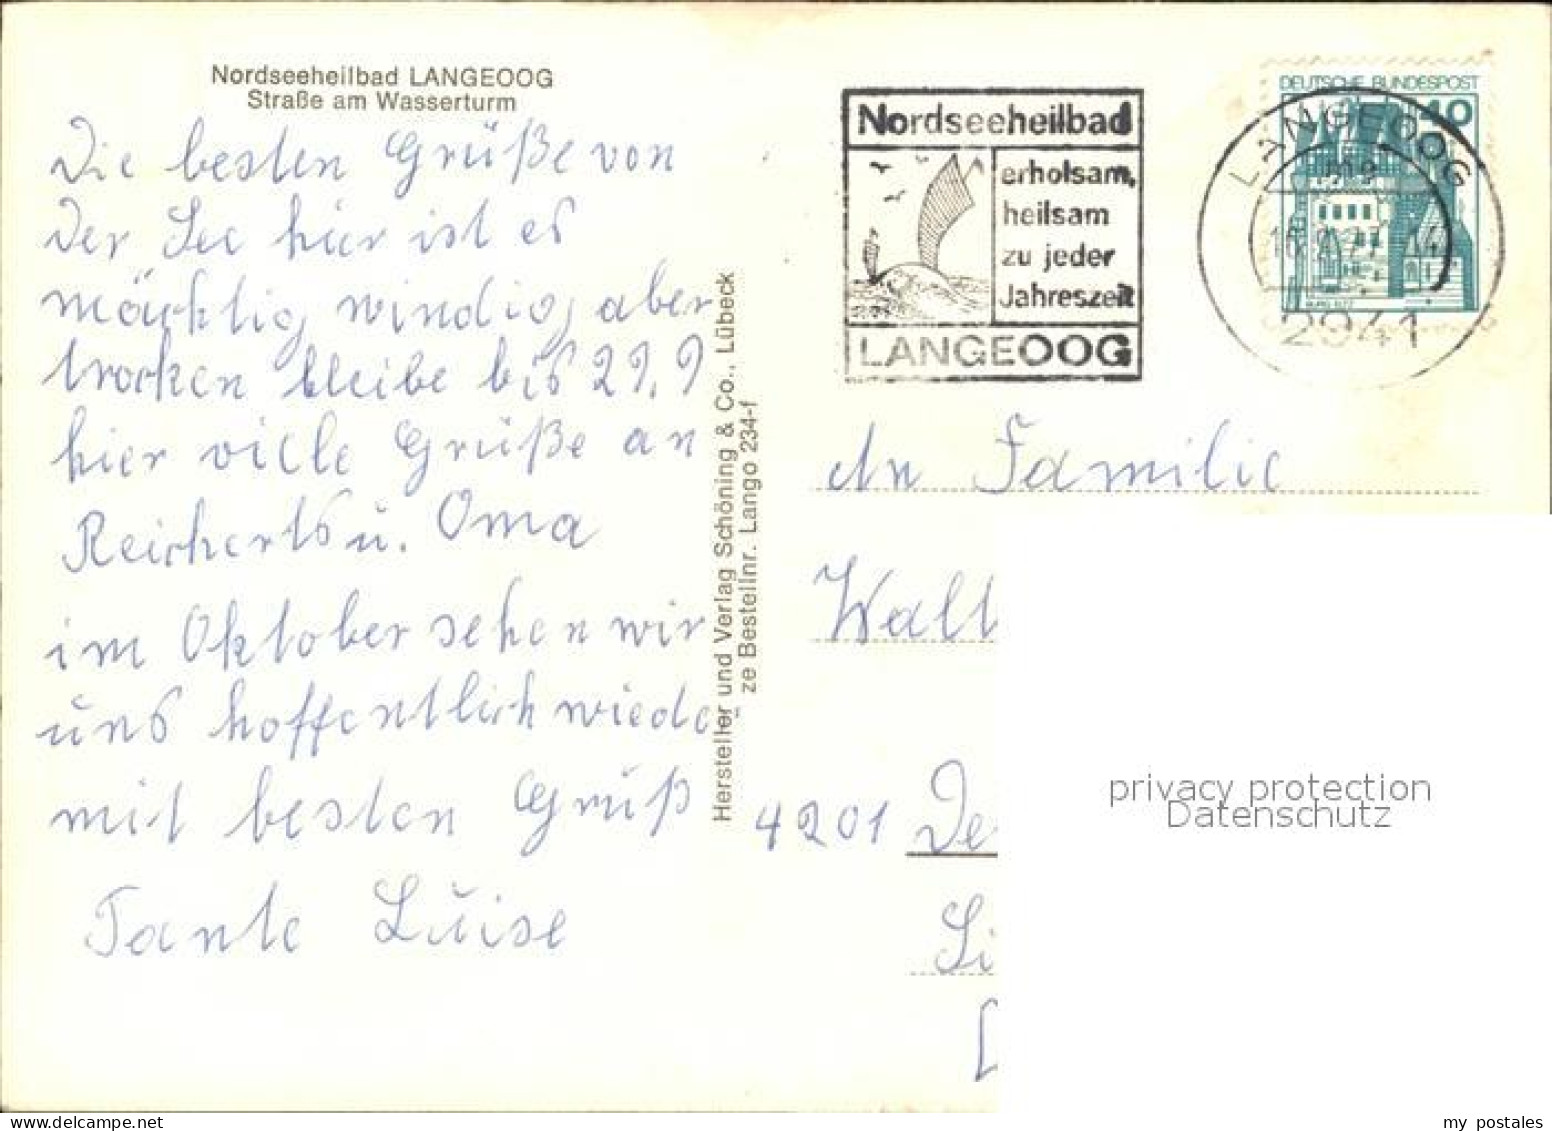 Nordseeheilbad LANGEOOG
Straße am Wasserturm
Die besten Grüße von
der See hier ist es
mächtig windig, aber
trocken bleibe bis 29.9
hier viele Grüße an
Reicherts u. Oma
im Oktober sehen wir
uns hoffentlich wieder
mit besten Grüß
Tante Luise
Hersteller und Verlag Schöning & Co., Lübeck
ze Bestellnr. Lango 234-f
Nordseeheilbad
erholsam,
heilsam
zu jeder
Jahreszeit
LANGEOOG
DEUTSCHE BUNDESPOST
40
LANGEOOG
2941
An Familie
Walt
4201 De
Li
privacy protection
Datenschutz
my postales